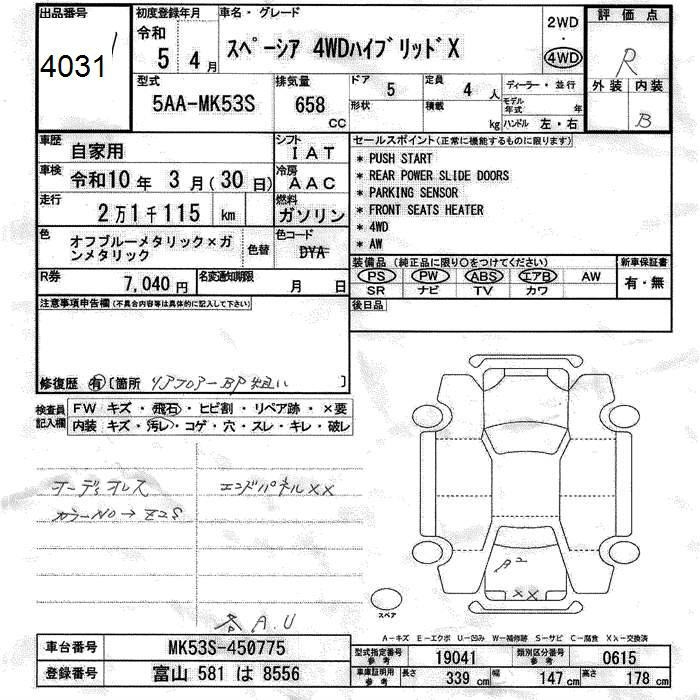 出品番号
4031
初度登録年月
令和
5 年 4 月
車名・グレード
スペーシア 4WDハイブリッドX
2WD
・
4WD
評価点
R
外装 内装
B
型式
5AA-MK53S
排気量
658
CC
ドア
5
定員
4 人
形状
積載
kg
ディーラー・並行
モデル年式
年
ハンドル 左・右
車歴
自家用
シフト
IAT
車検
令和10 年 3 月 ( 30 日)
冷房
AAC
走行
2 万 1 千 115 km
燃料
ガソリン
色
オフブルーメタリック×ガンメタリック
色替
色コード
DYA
R券
7,040 円
名変通知期限
月 日
セールスポイント(正常に機能するものに限ります)
* PUSH START
* REAR POWER SLIDE DOORS
* PARKING SENSOR
* FRONT SEATS HEATER
* 4WD
* AW
装備品 (純正品に限り○をつけてください)
新車保証書
PS PW ABS エアB AW
有・無
SR ナビ TV カワ
後日品
注意事項申告欄 (不具合内容等は具体的に記入して下さい)
修復歴 有 [箇所 リアフロアーBP 狙い ]
検査員記入欄
FW キズ・飛石・ヒビ割・リペア跡・×要
内装 キズ・汚レ・コゲ・穴・スレ・キレ・破レ
オーディオレス
エンドパネルXX
カラーNO→Z2S
A.U
A2
XX
スペア
A-キズ E-エクボ U-凹み W-補修跡 S-サビ C-腐食 XX-交換済
車台番号
MK53S-450775
登録番号
富山 581 は 8556
型式指定番号
参考
19041
類別区分番号
参考
0615
車庫証明用
参考
長さ
339 cm
幅
147 cm
高さ
178 cm